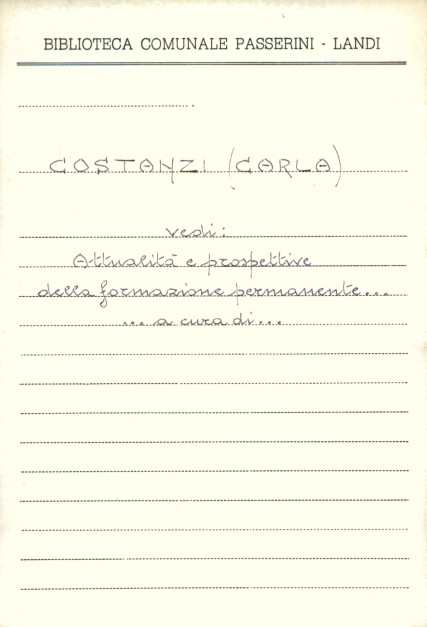 BIBLIOTECA COMUNALE PASSERINI - LANDI
COSTANZI (CARLA)
vedi:
Attualità e prospettive
della formazione permanente...
... a cura di...